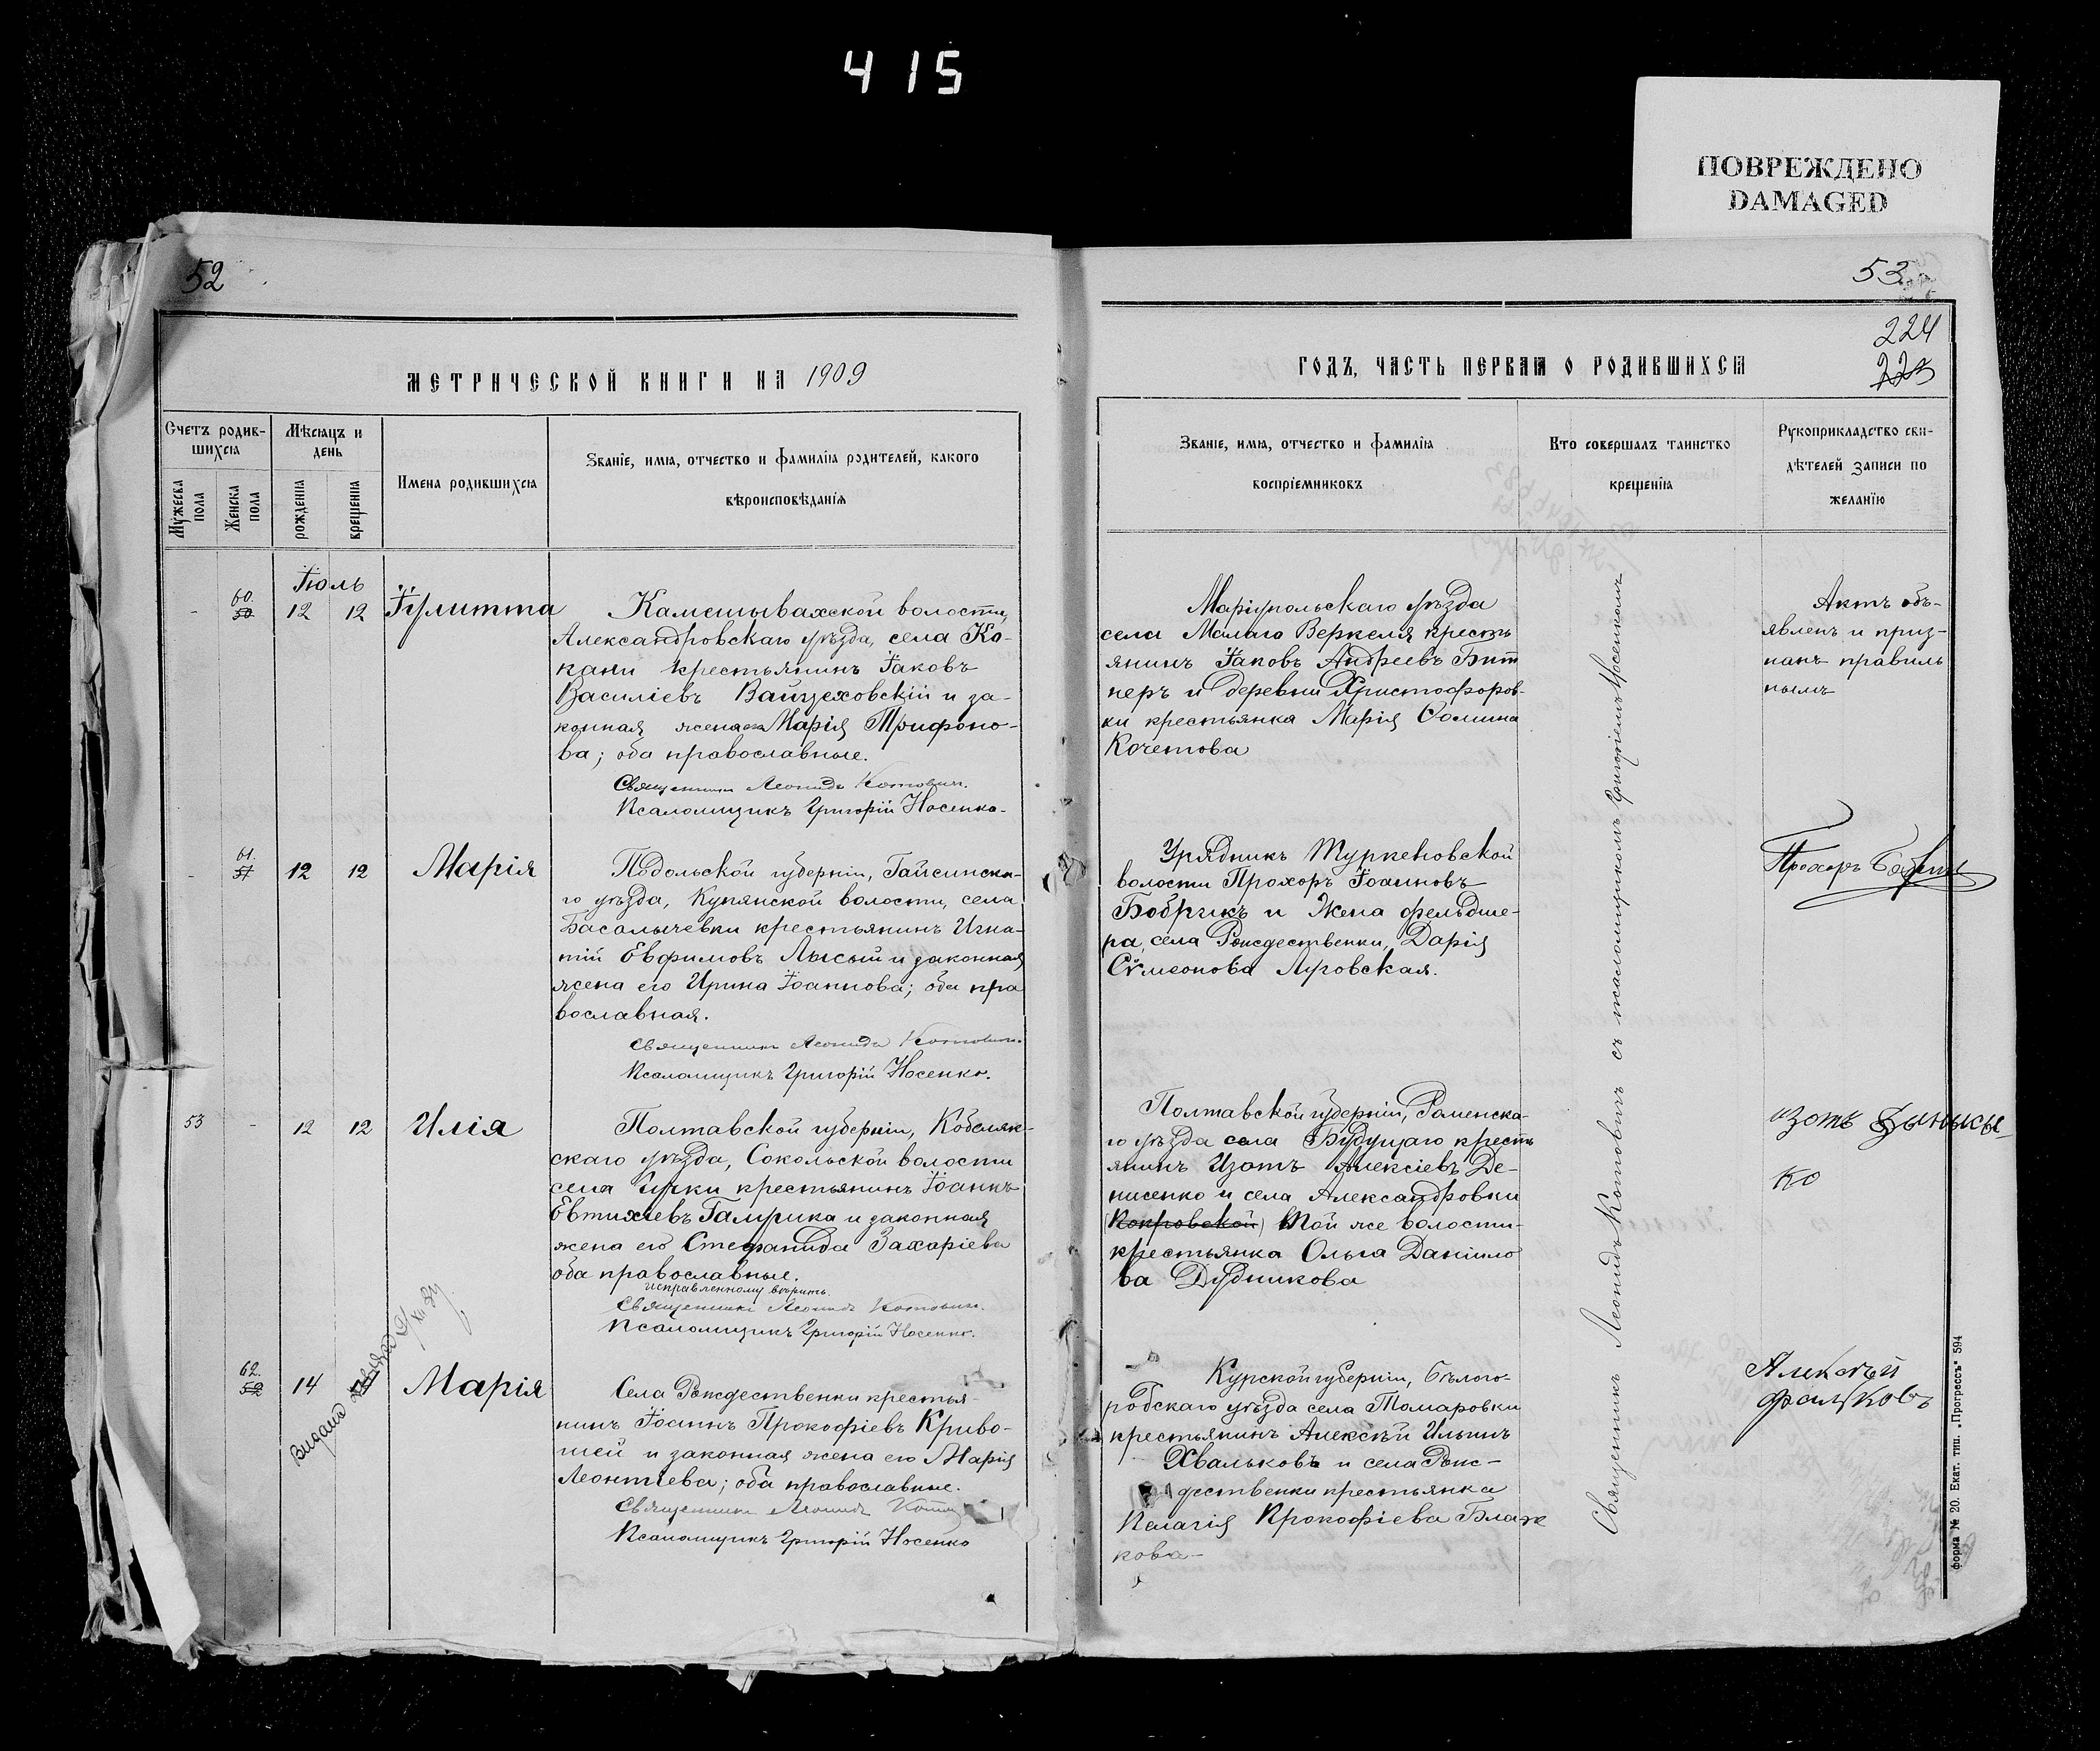 415
ПОВРЕЖДЕНО
DAMAGED
52
МЕТРИЧЕСКОЙ КНИГИ НА 1909
Счетъ родив-
шихся
Мѣсяцъ и
день
Мужеска
пола
Женска
пола
рожденія
крещенія
Имена родившихся
Званіе, имя, отчество и фамилія родителей, какого
вѣроисповѣданія
Іюль
60.
50
12 12 Іулитта
Камышывахской волости,
Александровскаго уѣзда, села Ко-
кани крестьянинъ Іаковъ
Василіевъ Вайцеховскій и за-
конная жена Марія Трифоно-
ва; оба православные.
Священникъ Леонидъ Котовичъ.
Псаломщикъ Григорій Носенко.
61.
51
12 12 Марія
Подольской губерніи, Гайсинска-
го уѣзда, Купянской волости, села
Басалычевки крестьянинъ Игна-
тій Евфимовъ Лысый и законная
жена его Ирина Іоаннова; оба пра
вославная.
Священникъ Леонидъ Котовичъ.
Псаломщикъ Григорій Носенко.
53 - 12 12 Илія
Полтавской губерніи, Кобеляк-
скаго уѣзда, Сокольской волости
села Гурки крестьянинъ Іоаннъ
Евтихіевъ Галушка и законная
жена его Стефанида Захаріева
оба православные.
исправленному вѣрить.
Священникъ Леонидъ Котовичъ.
Псаломщикъ Григорій Носенко.
62.
52
14 Марія
Видана
Села Рождественки крестья-
нинъ Іоаннъ Прокофіевъ Криво-
шей и законная жена его Марія
Леонтіева; оба православные.
Священникъ Леонидъ
Псаломщикъ Григорій Носенко
53
224
223
ГОДЪ, ЧАСТЬ ПЕРВАЯ О РОДИВШИХСЯ
Званіе, имя, отчество и фамилія
воспріемниковъ
Кто совершалъ таинство
крещенія
Рукоприкладство сви-
дѣтелей записи по
желанію
Маріупольскаго уѣзда
села Малаго Веркеля кресть
янинъ Іаковъ Андреевъ Бит
неръ и деревни Христофоров-
ки крестьянка Марія Фомина
Кочетова
Актъ объ-
явленъ и приз-
нанъ правиль
нымъ
Урядникъ Туркеновской
волости Прохоръ Іоанновъ
Бобрикъ и Жена фельдше-
ра, села Рождественки, Дарія
Сѵмеонова Луговская.
Прохоръ Бобрикъ
Полтавской губерніи, Роменска-
го уѣзда села Будущаго кресть
янинъ Изотъ Алексіевъ Де-
нисенко и села Александровки
(Покровской) той же волости
крестьянка Ольга Даніило
ва Дудникова
изотъ Дынысе-
ко
Курской губерніи, Бѣлого-
родскаго уѣзда села Томаровки
крестьянинъ Алексѣй Ильинъ
Хвальковъ и села Рож-
дественки крестьянка
Пелагія Прокофіева Блаж
кова-
Алексѣй
фальковъ
Священникъ Леонидъ Котовичъ съ псаломщикомъ Григоріемъ Носенкомъ
Форма № 20. Екат. тип. „Прогрессъ“ 594